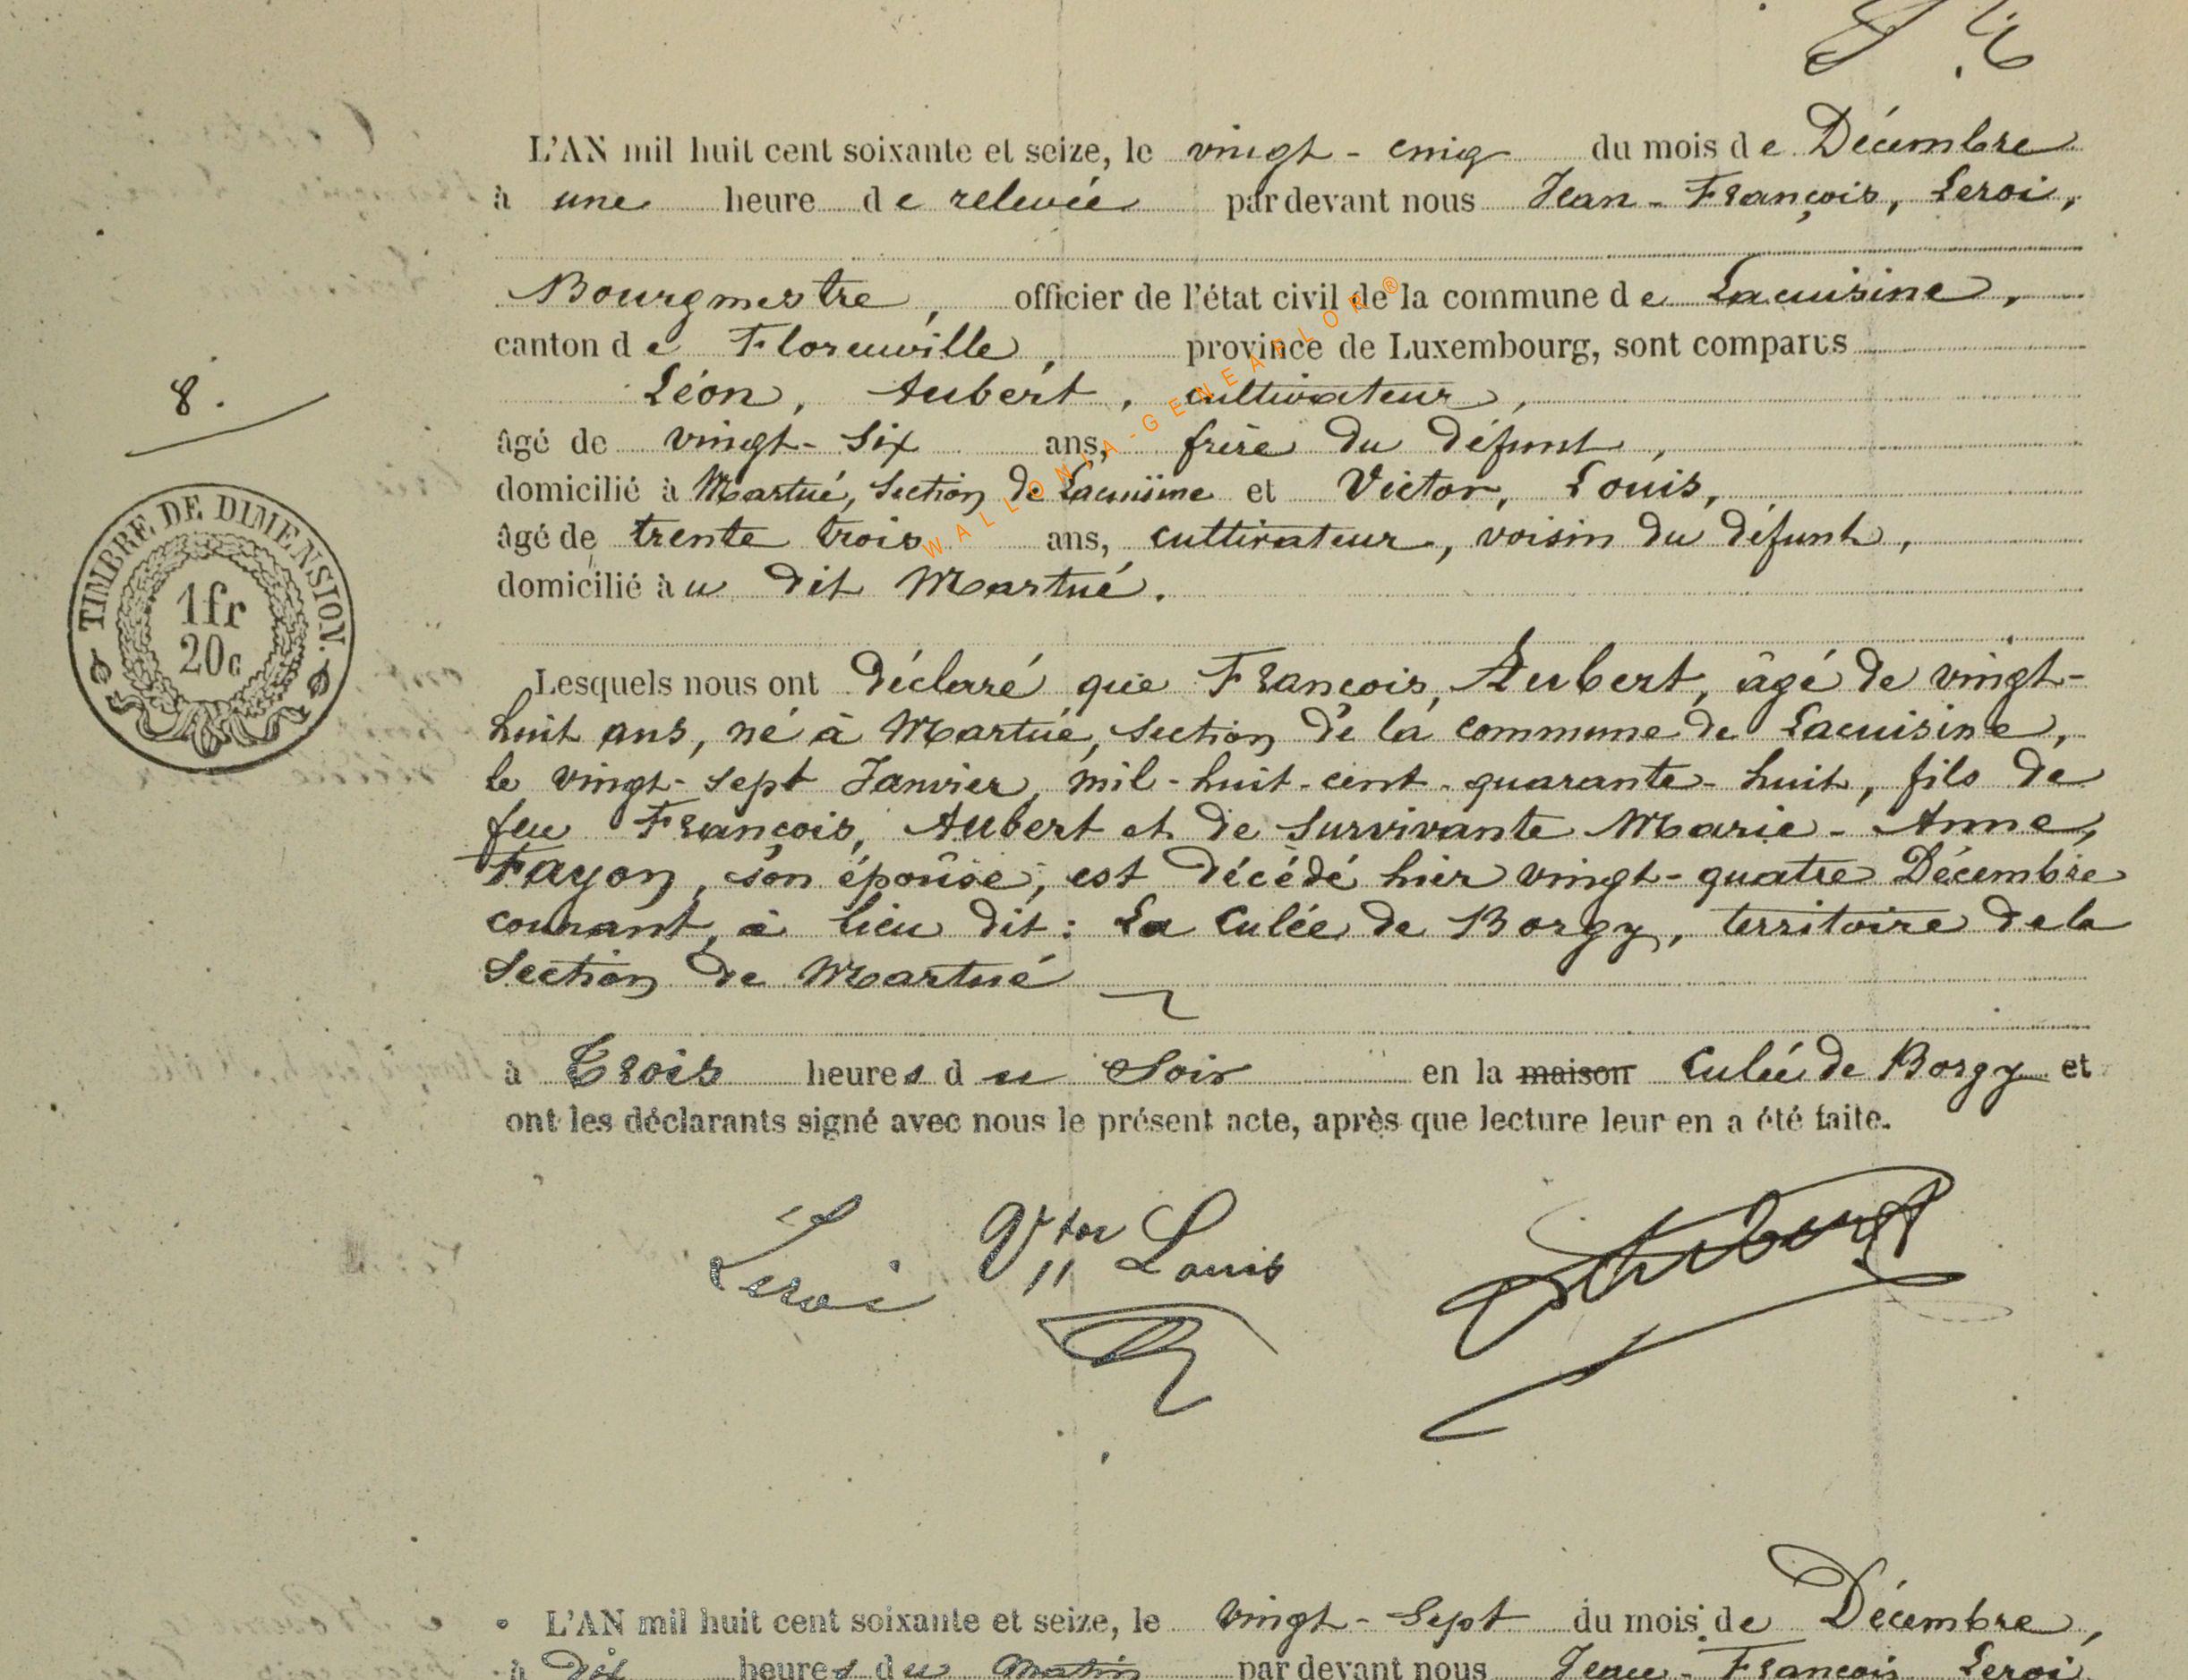 L'AN mil huit cent soixante et seize, le vingt-cinq du mois de Décembre
à une heure de relevée par devant nous Jean-François, Leroi,
Bourgmestre, officier de l'état civil de la commune de Lacuisine,
canton de Florenville, province de Luxembourg, sont comparus
Léon, Aubert, cultivateur,
8.
âgé de vingt-six ans, frère du défunt,
domicilié à Martué, Section de Lacuisine et Victor, Louis,
âgé de trente trois ans, cultivateur, voisin du défunt,
domicilié au dit Martué.
WALLONIA-GENEARLOR®
TIMBRE DE DIMENSION.
1fr
20c
Lesquels nous ont déclaré que François, Aubert, âgé de vingt-
huit ans, né à Martué, section de la commune de Lacuisine,
le vingt-sept Janvier, mil-huit-cent-quarante-huit, fils de
feu François, Aubert et de survivante Marie-Anne,
Fayon, son épouse, est décédé hier vingt-quatre Décembre
courant, à lieu dit: La Culée de Borgy, territoire de la
Section de Martué
à Trois heures du Soir en la maison Culée de Borgy et
ont les déclarants signé avec nous le présent acte, après que lecture leur en a été faite.
Leroi Vtor Louis Aubert
L'AN mil huit cent soixante et seize, le vingt-Sept du mois de Décembre,
à Dix heures du Matin par devant nous Jean-François Leroi